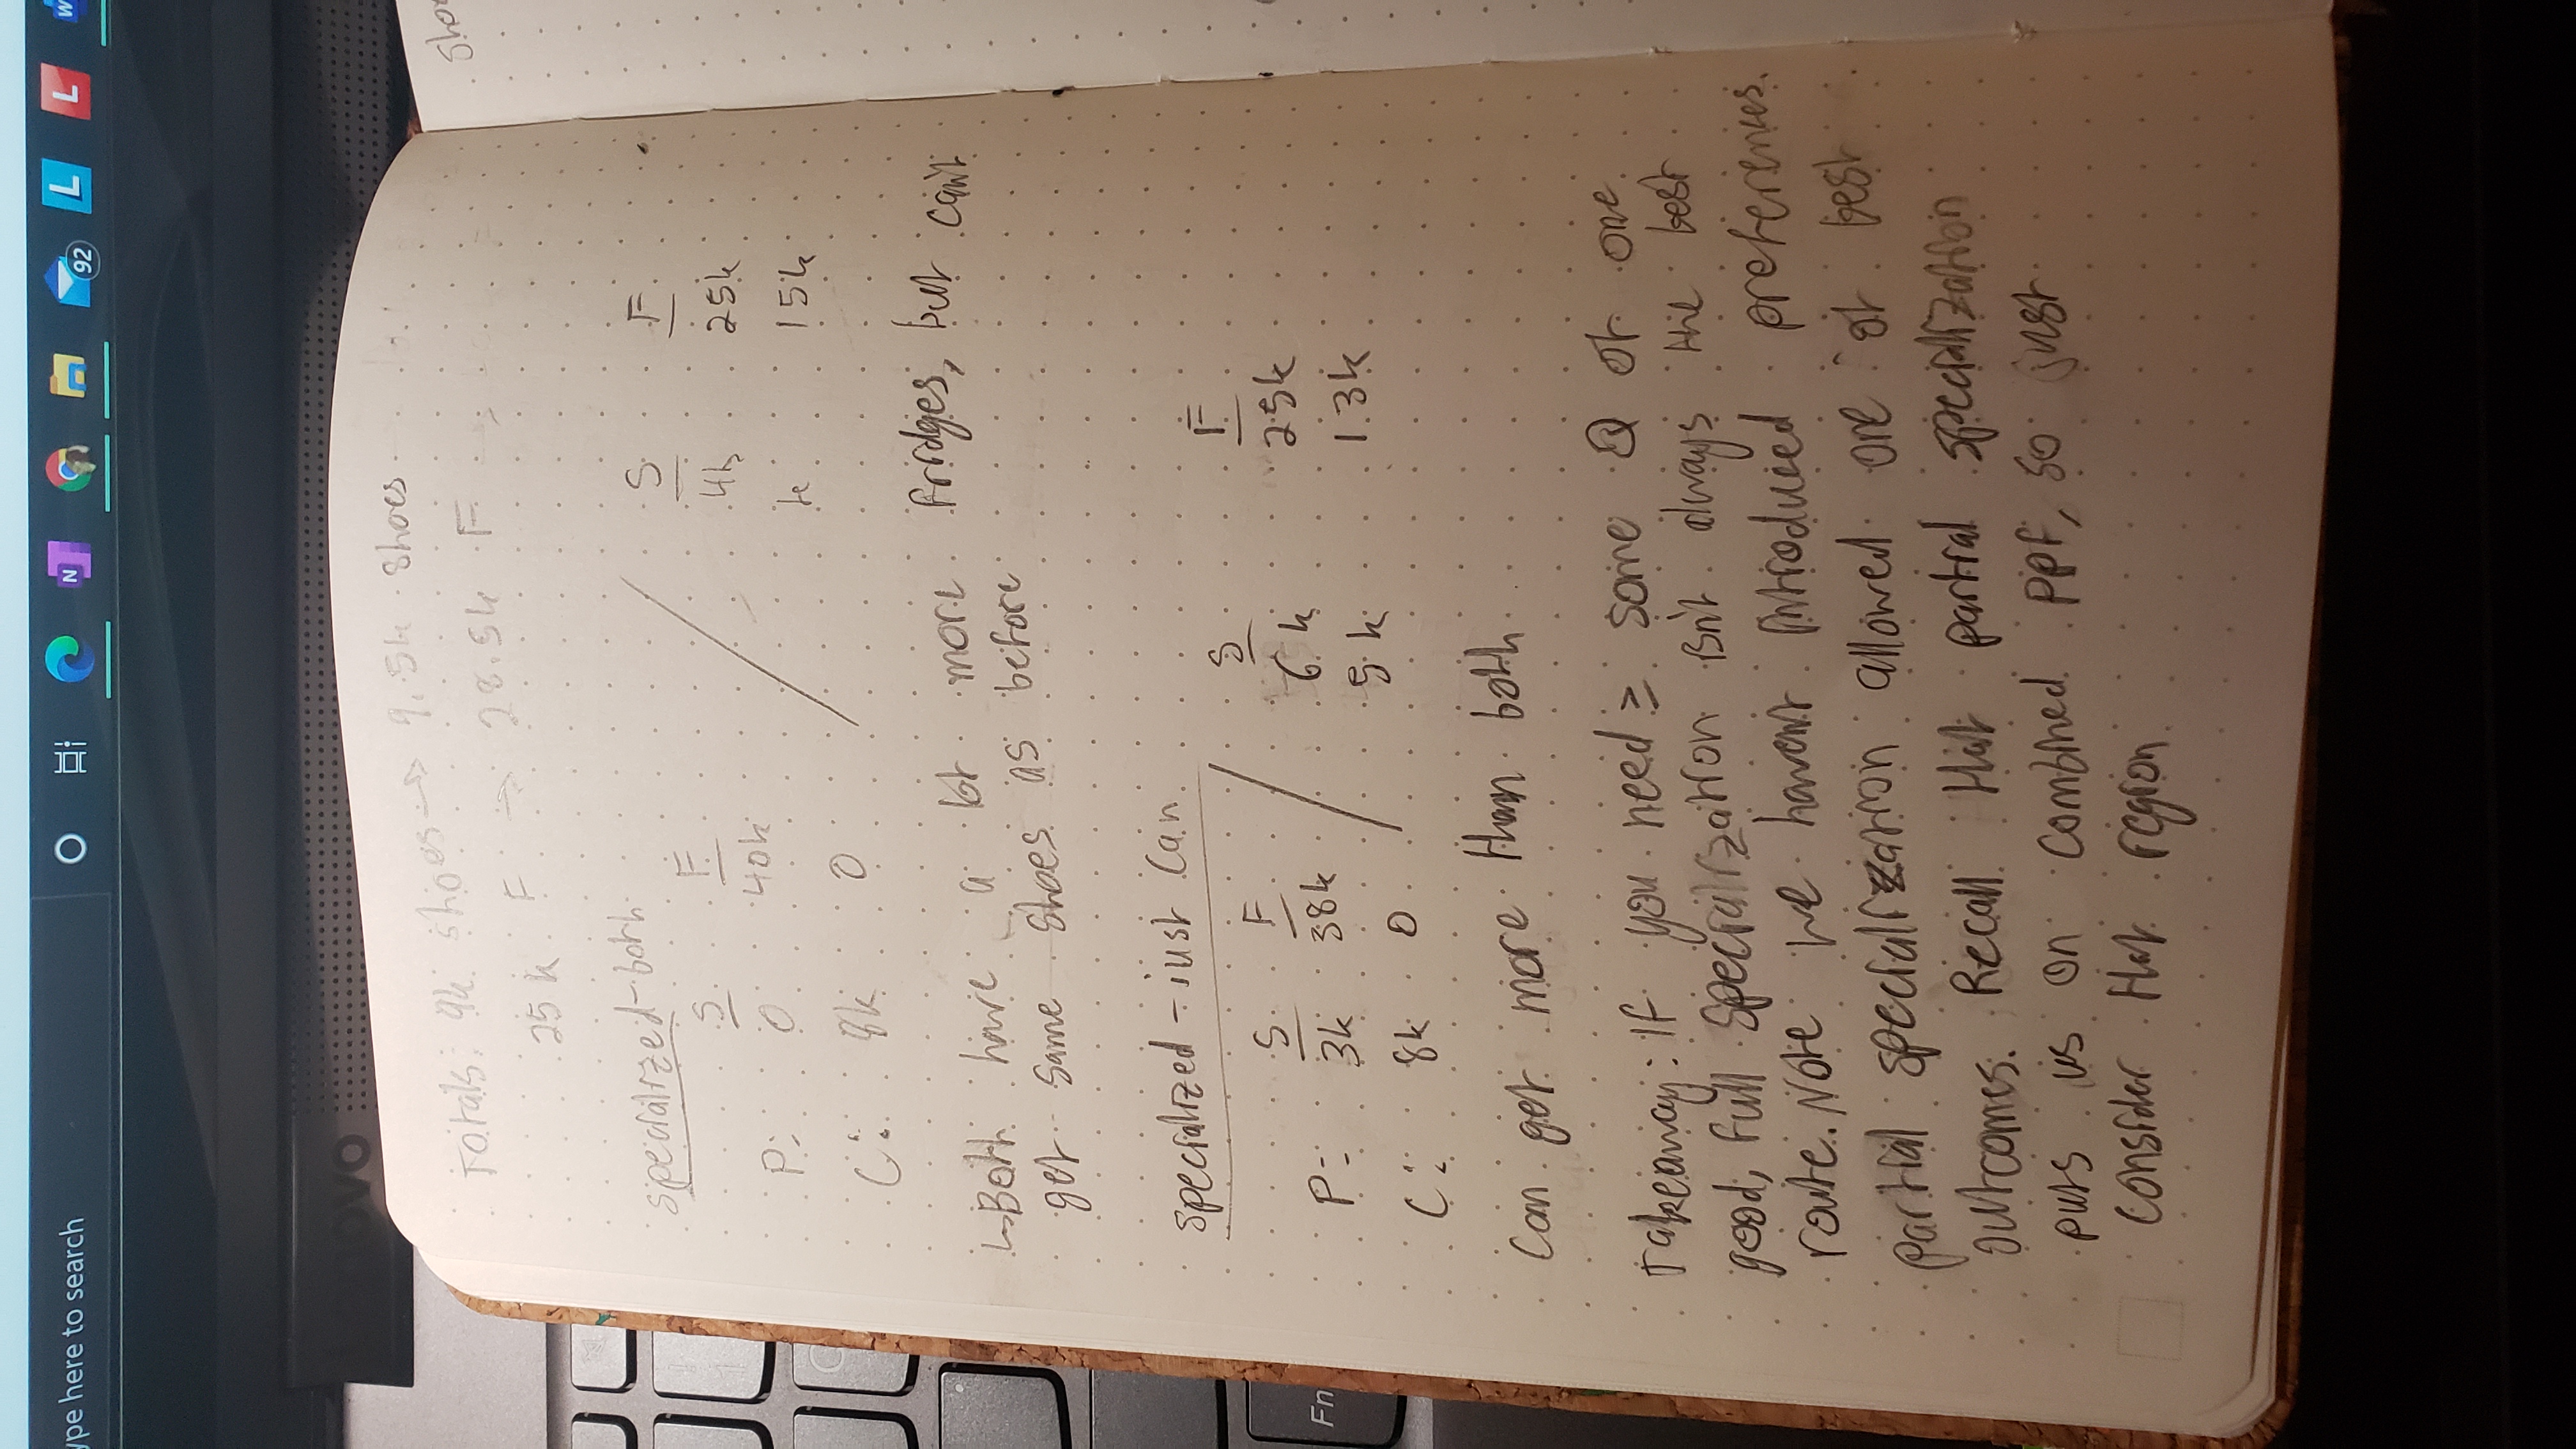 ype here to search
N
92
L
L
W
ovo
Totals: 9k shoes → 9.5k shoes
25k F → 28.5k F
Sho
specialized - both
S F
P: 0 40k
C: 8k 0
S F
4k 25k
15k
↳ Both have a lot more fridges, but can't
get same shoes as before
specialized - just Can
S F
P: 3k 38k
C: 8k 0
S F
6k 25k
5k 13k
Can get more than both
Fn
Takeaway: If you need ≥ some Q of one
good, full specialization isn't always the best
route. Note we haven't introduced preferences.
partial specialization allowed one of best
outcomes. Recall that partial specialization
puts us on combined ppf, so just
consider that region